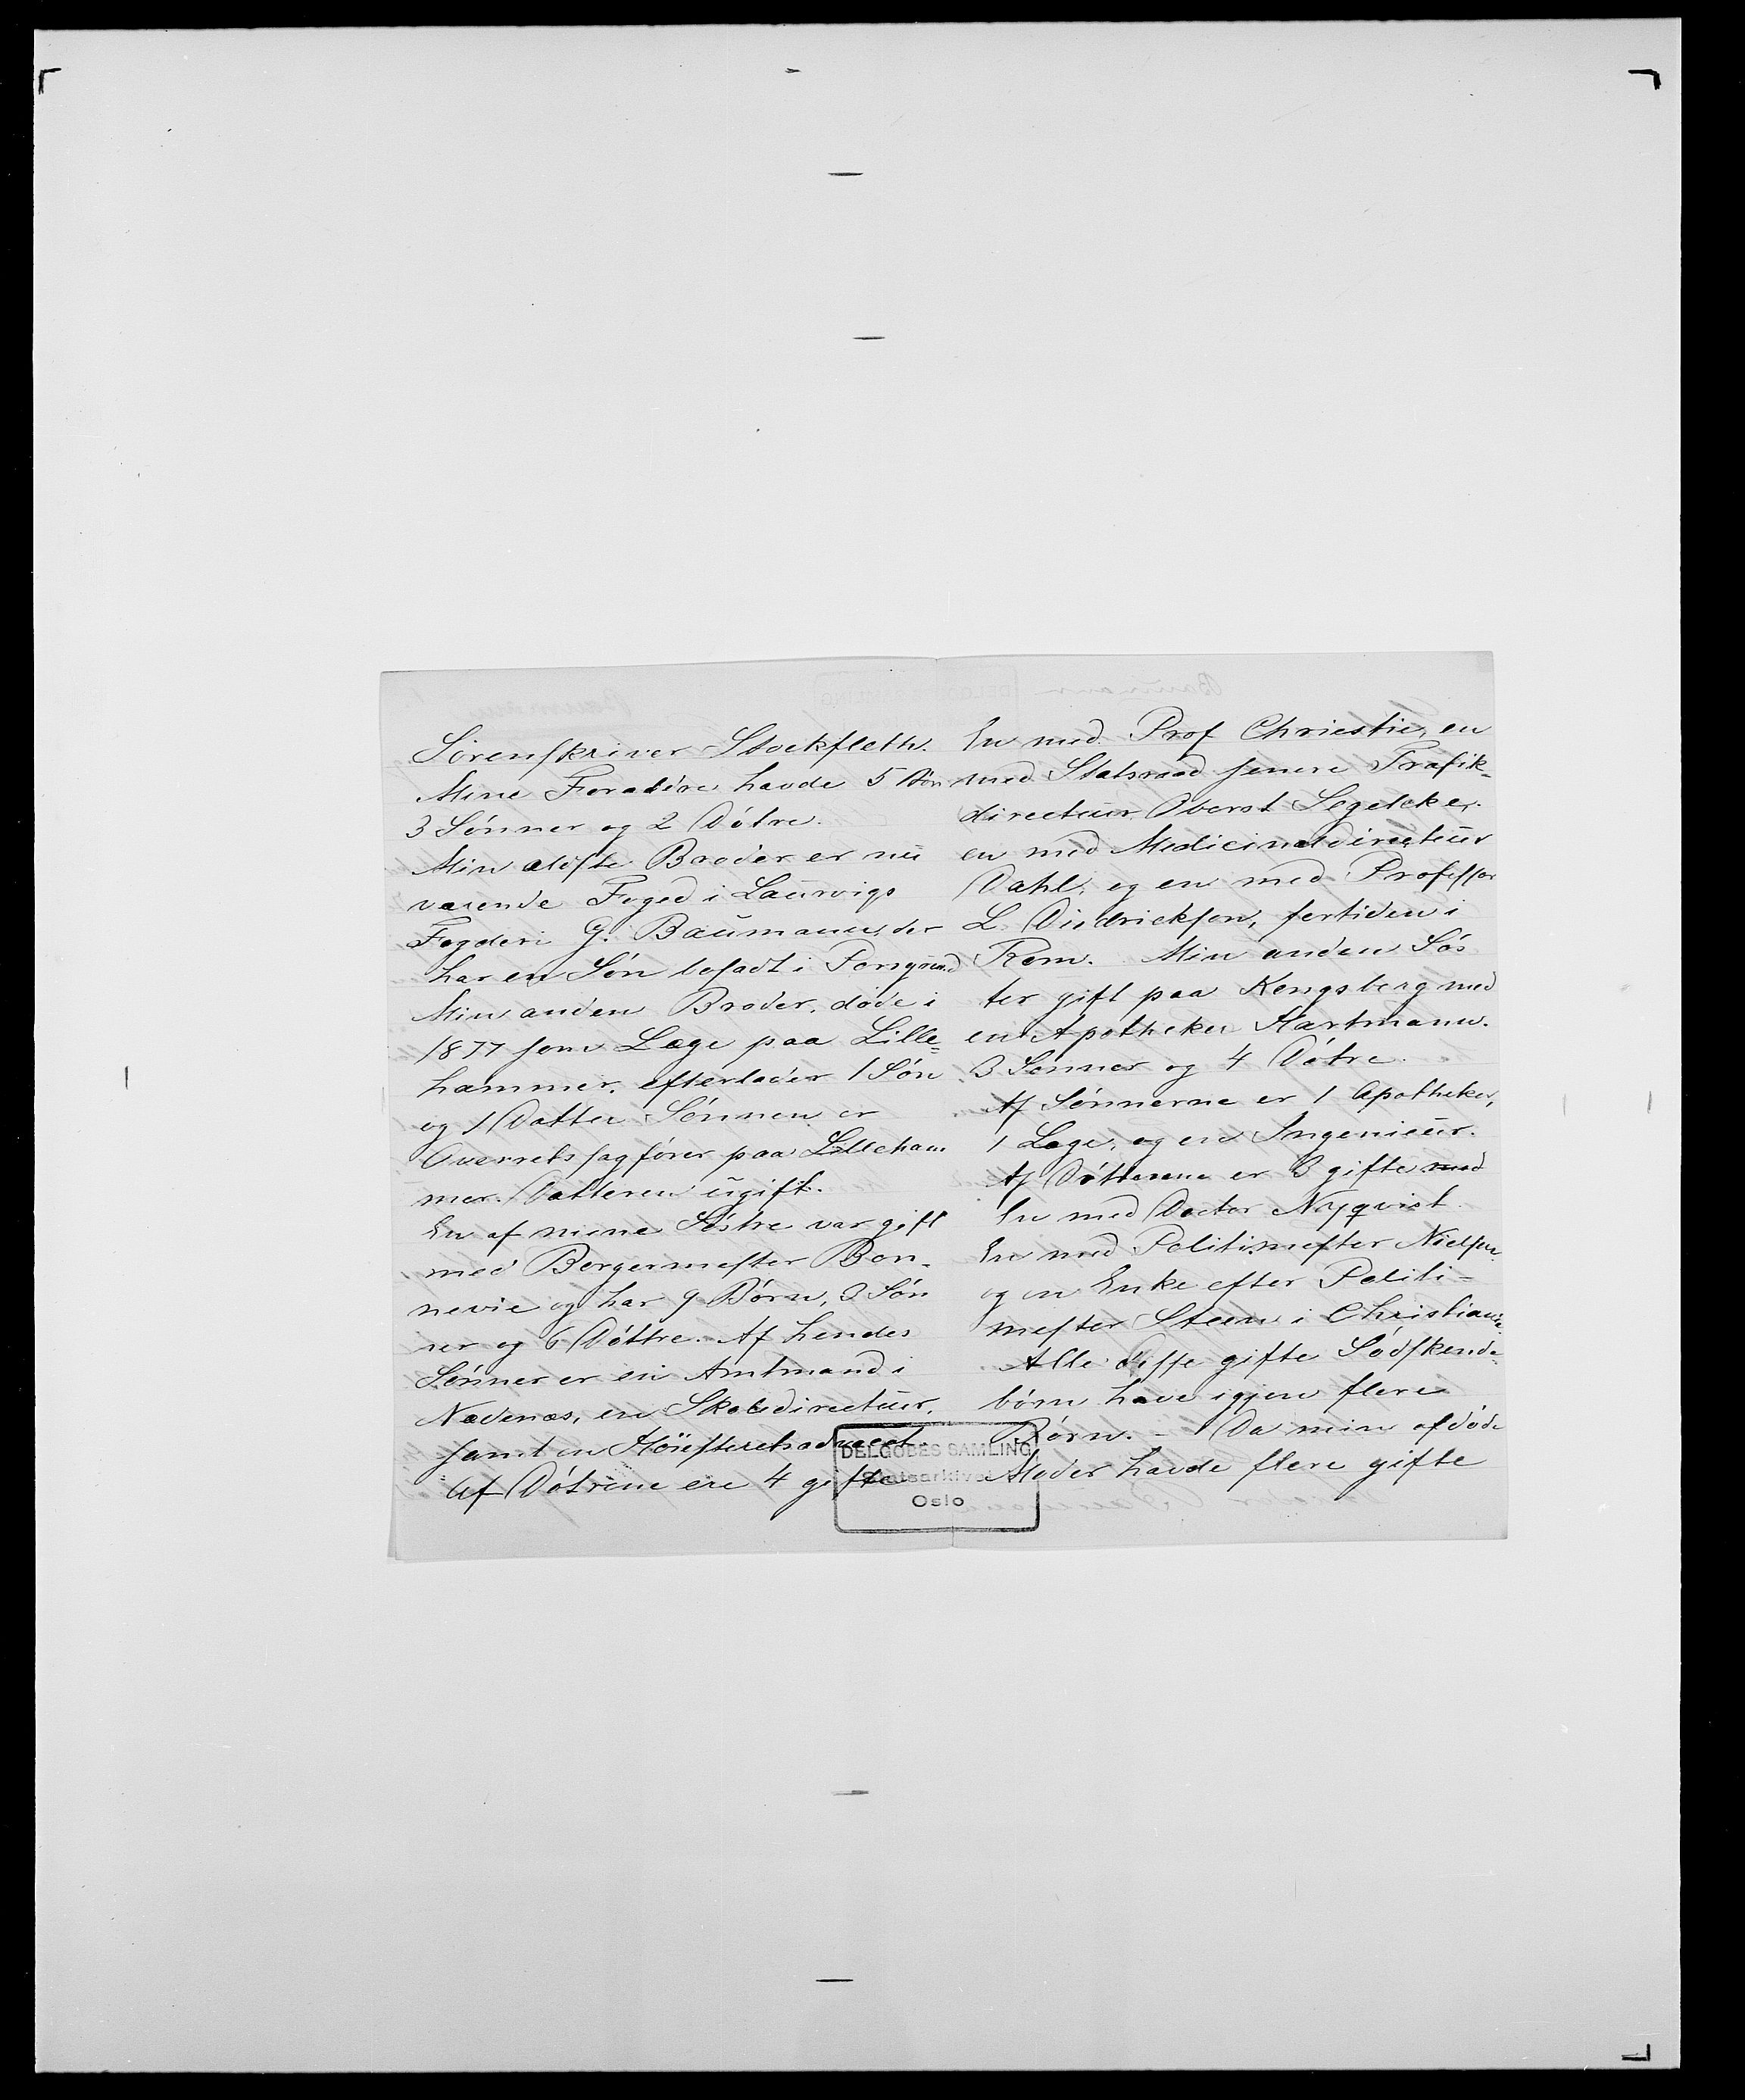 Sörenskriver Stockfleth.
Mine Forældre havde 5 Börn
3 Sönner og 2 Dötre.
Min ældste Broder er nu
værende Foged i Laurvigs
Fogderi G. Baumann der
har en Sön bosadt i Porsgrund
Min anden Broder, döde i
1877 som Læge paa Lille-
hammer, efterlader 1 Sön
og 1 Datter Sönnen er
Overretssagförer paa Lilleham
mer. Datteren ugift.
En af mine Söstre var gift
med Borgermester Bon-
nevie og har 9 Börn, 3 Sön
ner og 6 Döttre. Af hendes
Sönner er en Amtmand i
Nedenæs, en Skoledirecteur,
samt en Höiesteretsadvocat.
Af Dötrene ere 4 gifte
En med Prof Christie, en
med Statsraad senere Trafik-
directeur Oberst Segelcke,
en med Medicinaldirecteur
Dahl, og en med Professor
L. Didrickson, fortiden i
Rom. Min anden Sös
ter gift paa Kongsberg med
en Apotheker Hartmann.
3 Sönner og 4 Dötre.
Af Sönnerne er 1 Apotheker,
1 Læge, og en Ingenieur.
Af Döttrene er 3 gifte med
En med Doctor Nyqvist
En med Politimester Nielsen
og en Enke efter Politi-
mester Steen i Christians.
Alle disse gifte Södskende-
börn have igjen flere
Börn. - Da min afdöde
Moder havde flere gifte
DELGOBES SAMLING
Statsarkivet
Oslo